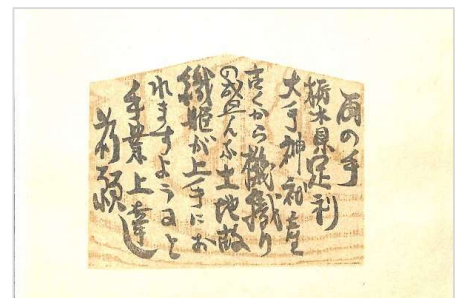 両の手
栃木県足利
大手神社産
古くから機織り
の盛んな土地故
織姫が上手にお
れますようにと
手業上達し
祈願